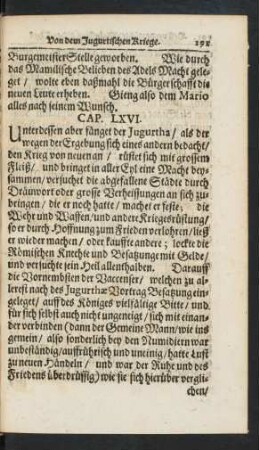 Von dem Jugurtischen Kriege. 191
Burgemeister Stelle geworben. Wie durch
das Mamilische Belieben des Adels Macht gele-
get / wolte eben daßmahl die Bürgerschafft die
neuen Leute erheben. Gieng also dem Mario
alles nach seinem Wunsch.
CAP. LXVI.
Unterdessen aber fänget der Jugurtha / als der
wegen der Ergebung sich eines andern bedacht /
den Krieg von neuen an / rüstet sich mit grossem
Fleiß / und bringet in aller Eyl eine Macht bey-
sammen / versuchet die abgefallene Städte durch
Dräuwort oder grosse Verheissungen an sich zu
bringen / die er noch hatte / machet er feste; die
Wehr und Waffen / und andere Kriegesrüstung /
so er durch Hoffnung zum Frieden verlohren / ließ
er wieder machen / oder kauffte andere; lockte die
Römischen Knechte und Besatzunge mit Gelde /
und versucht sein Heil allenthalben. Darauff
die Vornembsten der Vaccenser / welchen zu al-
lererst nach des Jugurthæ Vortrag Besatzung ein-
geleget / auff des Königes vielfältige Bitte / und
für sich selbst auch nicht ungeneigt / sich mit einan-
der verbinden (dann der Gemeine Mann / wie ins
gemein / also sonderlich bey den Numidiern war
unbeständig / auffrührisch und uneinig / hatte Lust
zu neuen Händeln / und war der Ruhe und des
Friedens überdrüssig) wie sie sich hierüber vergli-
chen /